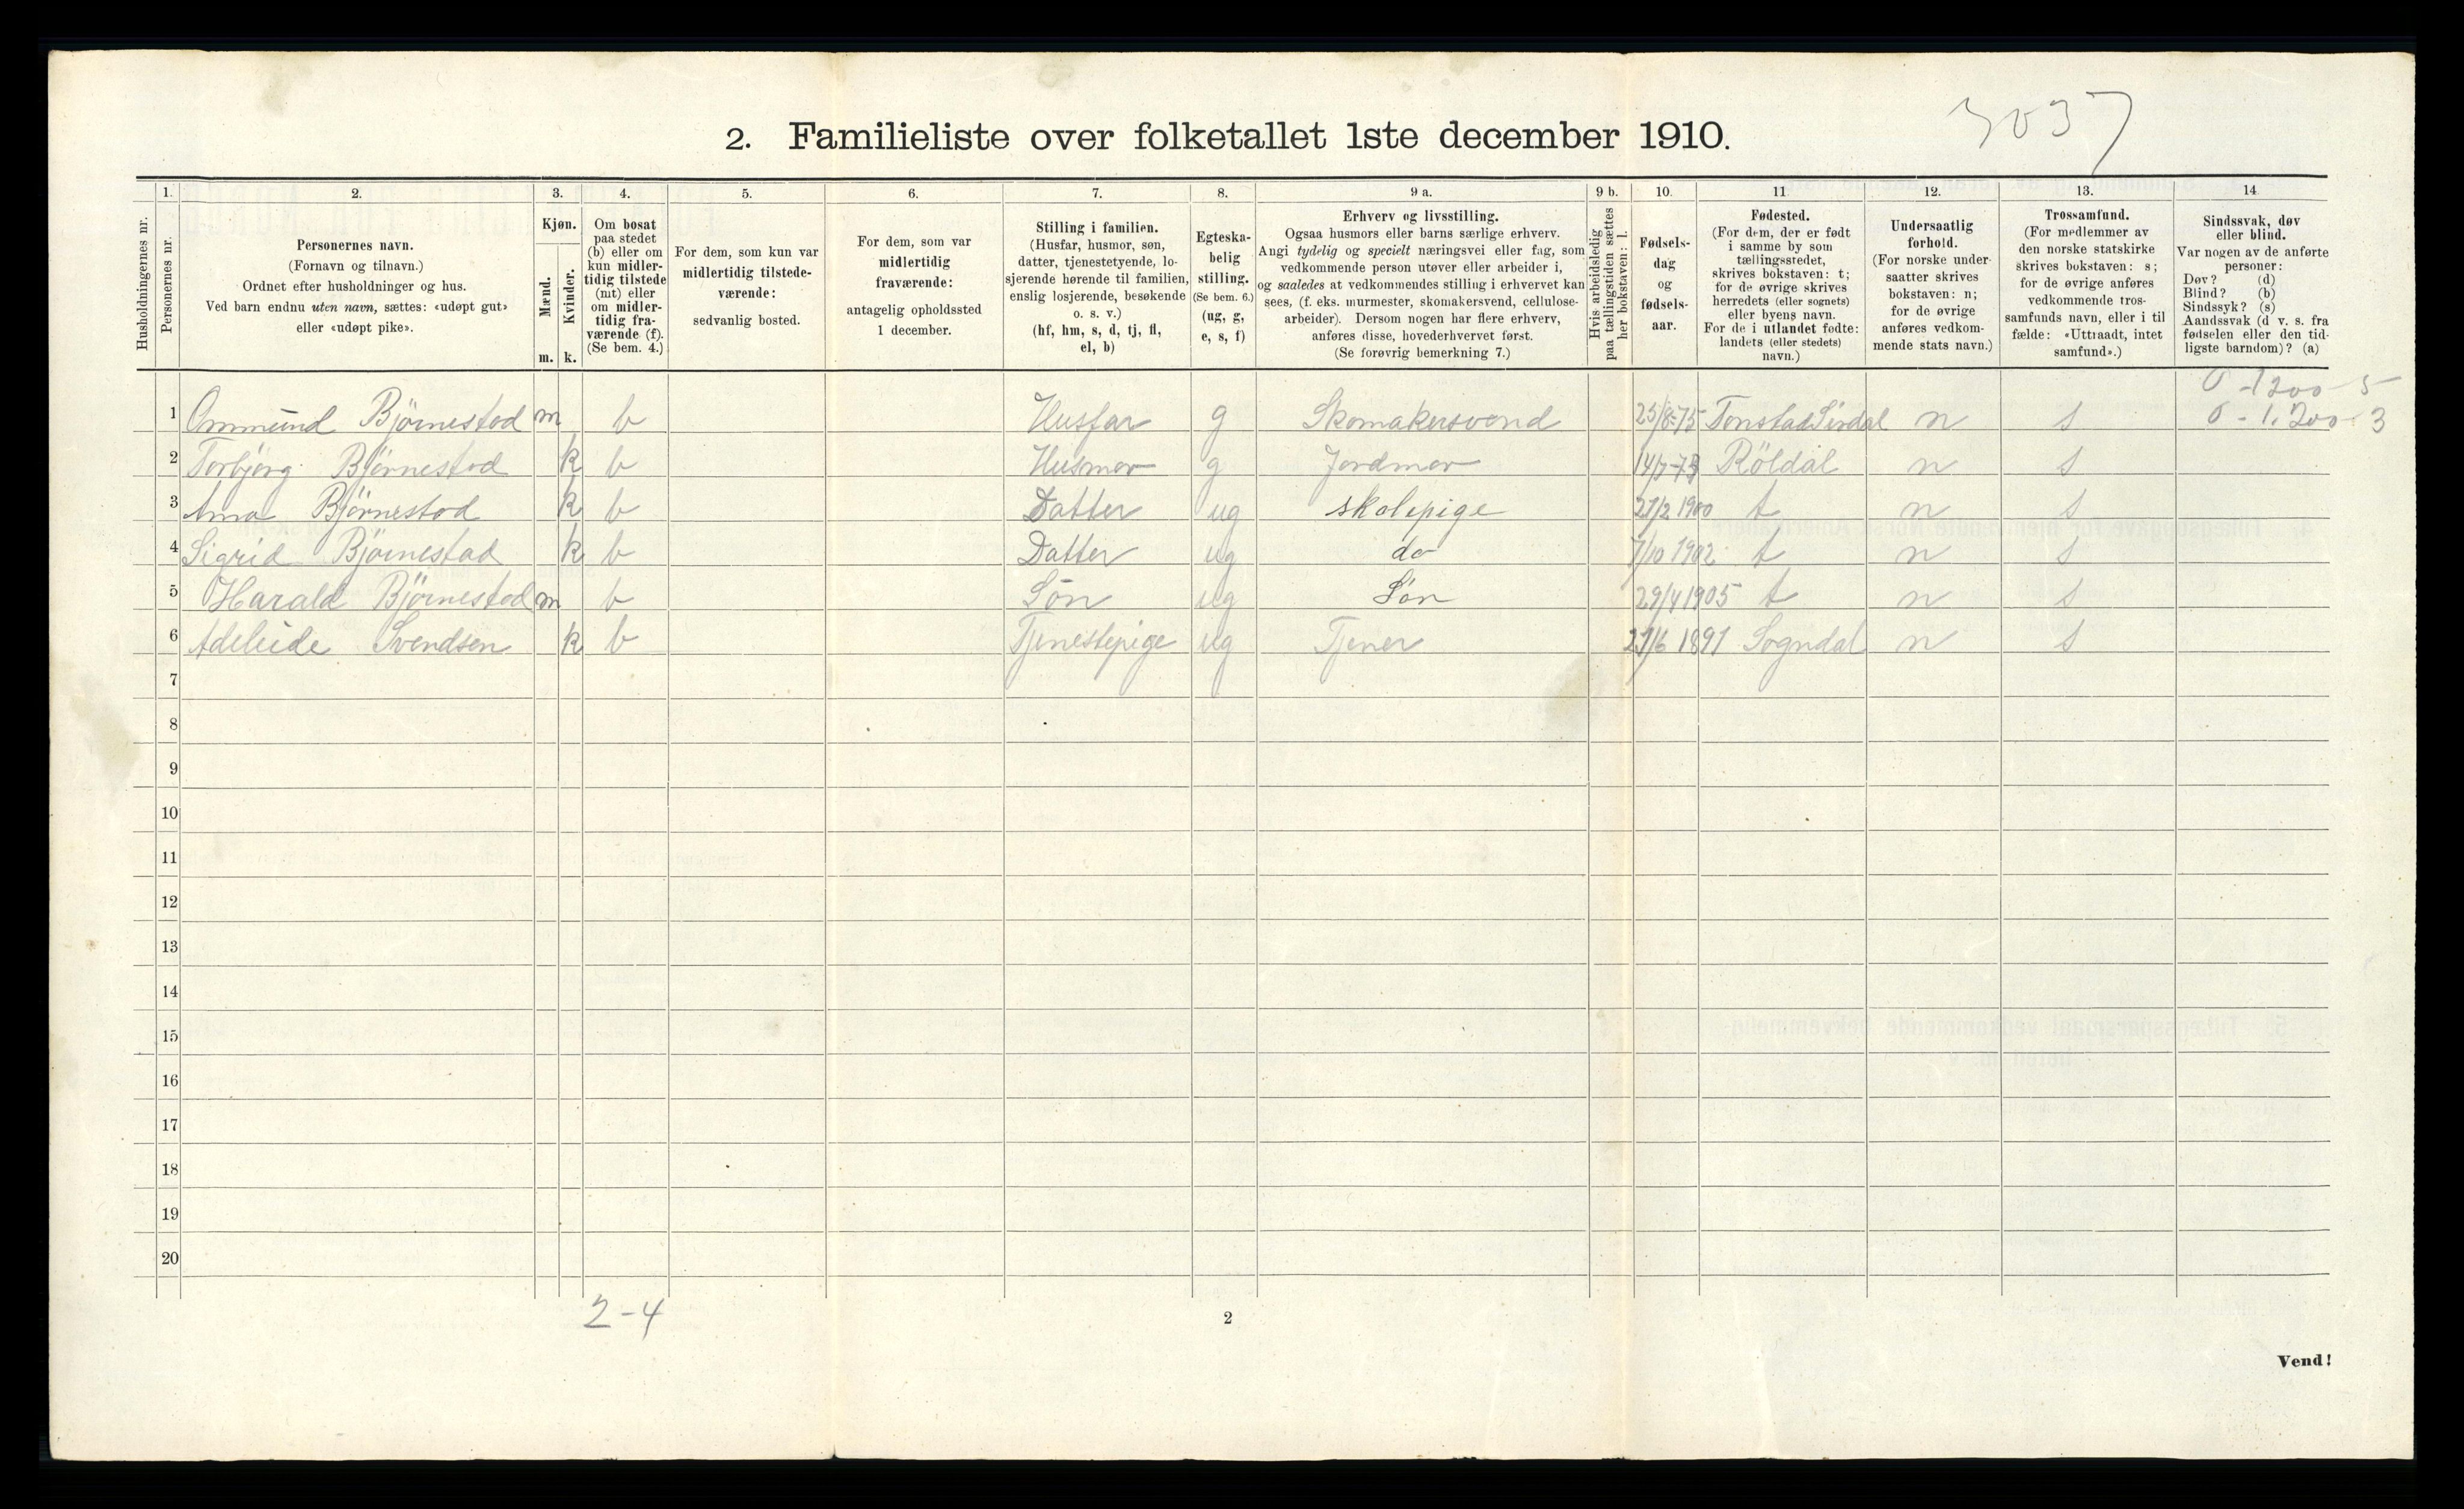 3037
2. Familieliste over folketallet 1ste december 1910.
1. 2. 3. 4. 5. 6. 7. 8. 9 a. 9 b. 10. 11. 12. 13. 14
Husholdningernes nr.
Personernes nr.
Personernes navn.
(Fornavn og tilnavn.)
Ordnet efter husholdninger og hus.
Ved barn endnu uten navn, sættes: «udøpt gut»
eller «udøpt pike».
Kjøn.
Mænd.
Kvinder.
m. k.
Om bosat
paa stedet
(b) eller om
kun midler-
tidig tilstede
(mt) eller
om midler-
tidig fra-
værende (f).
(Se bem. 4.)
For dem, som kun var
midlertidig tilstede-
værende:
sedvanlig bosted.
For dem, som var
midlertidig
fraværende:
antagelig opholdssted
1 december.
Stilling i familien.
(Husfar, husmor, søn,
datter, tjenestetyende, lo-
sjerende hørende til familien,
enslig losjerende, besøkende
o. s. v.)
(hf, hm, s, d, tj, fl,
el, b)
Egteska-
belig
stilling.
(Se bem. 6.)
(ug, g,
e, s, f)
Erhverv og livsstilling.
Ogsaa husmors eller barns særlige erhverv.
Angi tydelig og specielt næringsvei eller fag, som
vedkommende person utøver eller arbeider i,
og saaledes at vedkommendes stilling i erhvervet kan
sees, (f. eks. murmester, skomakersvend, cellulose-
arbeider). Dersom nogen har flere erhverv,
anføres disse, hovederhvervet først.
(Se forøvrig bemerkning 7.)
Hvis arbeidsledig
paa tællingstiden sættes
her bokstaven: l.
Fødsels-
dag
og
fødsels-
aar.
Fødested.
(For dem, der er født
i samme by som
tællingsstedet,
skrives bokstaven: t;
for de øvrige skrives
herredets (eller sognets)
eller byens navn.
For de i utlandet fødte:
landets (eller stedets)
navn.)
Undersaatlig
forhold.
(For norske under-
saatter skrives
bokstaven: n;
for de øvrige
anføres vedkom-
mende stats navn.)
Trossamfund.
(For medlemmer av
den norske statskirke
skrives bokstaven: s;
for de øvrige anføres
vedkommende tros-
samfunds navn, eller i til
fælde: «Uttraadt, intet
samfund».)
Sindssvak, døv
eller blind.
Var nogen av de anførte
personer:
Døv? (d)
Blind? (b)
Sindssyk? (s)
Aandssvak (d v. s. fra
fødselen eller den tid-
ligste barndom)? (a)
0 - 1200 - 5
1 Ommund Bjørnestad m b Husfar g Skomakersvend 25/8-75 Tonstad Sirdal n s 0 - 1.200 - 3
2 Torbjørg Bjørnestad k b Husmor g Jordmor 14/7-73 Röldal n s
3 Anna Björnestad k b Datter ug skolepige 27/2 1900 t n s
4 Sigrid Björnestad k b Datter ug do 7/10 1902 t n s
5 Harald Björnestad m b Sön ug Sön 29/4 1905 t n s
6 Adeleide Svendsen k b Tjenestepige ug Tjener 27/6 1891 Sogndal n s
7
8
9
10
11
12
13
14
15
16
17
18
19
20
2-4
2
Vend!